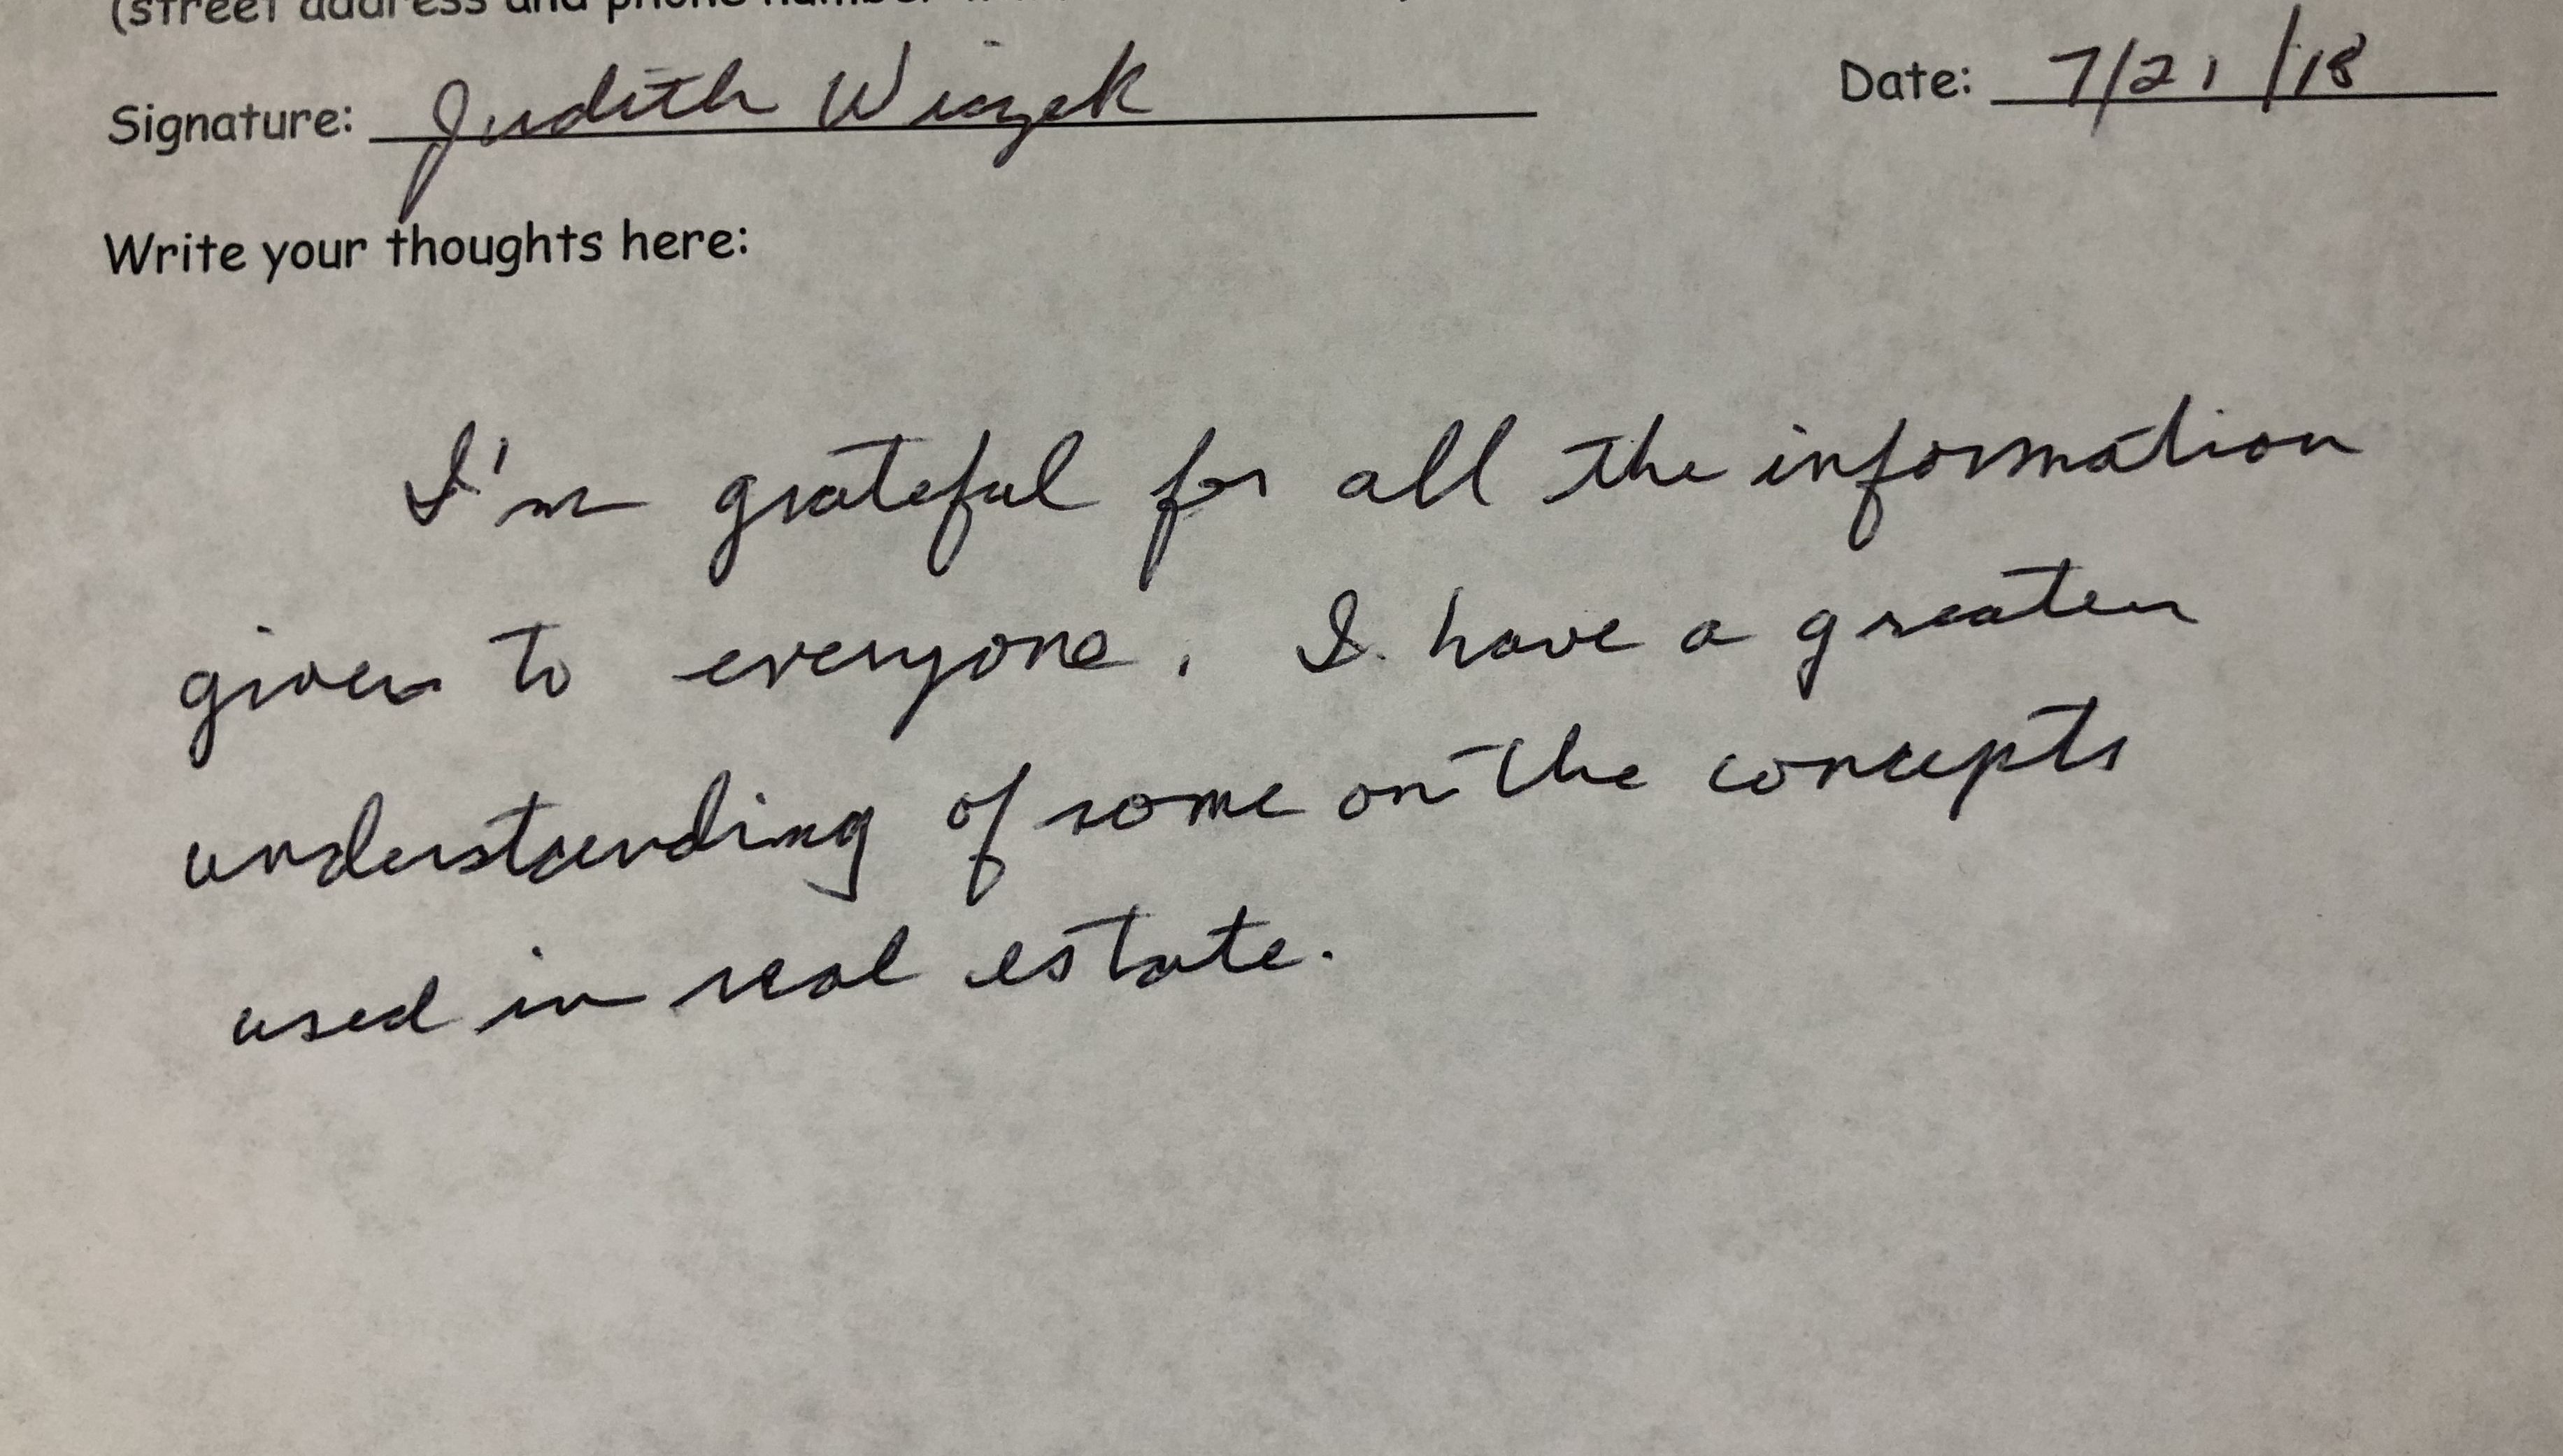 (street address and phone number
Signature: Judith Wiazek Date: 7/21/18
Write your thoughts here:
I'm grateful for all the information
given to everyone. I have a greater
understanding of some on the concepts
used in real estate.